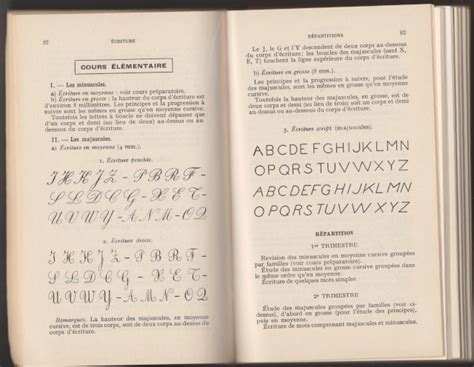 82 ÉCRITURE
COURS ÉLÉMENTAIRE
I. — Les minuscules.
a) Écriture en moyenne : voir cours préparatoire.
b) Écriture en grosse : la hauteur du corps d'écriture est
d'environ 8 millimètres. Les principes et la progression à
suivre sont les mêmes que pour l'écriture en moyenne.
Toutefois les lettres à boucle ne doivent dépasser que
d'un corps et demi (au lieu de deux) au-dessus ou au-
dessous du corps d'écriture.
II. — Les majuscules.
a) Écriture en moyenne (4 mm.).
1. Écriture penchée.
I H K J Z - P B R F -
S L D C G - X - E -
U V W Y - A N M - O Q
2. Écriture droite.
I H K J Z - P B R F -
S L D C G - X - E -
U V W Y - A N M - O Q
Remarques. La hauteur des majuscules, en moyenne
cursive, est de trois corps, soit de deux corps au-dessus du
corps d'écriture.
RÉPARTITIONS 83
Le J, le G et l'Y descendent de deux corps au-dessous
du corps d'écriture; les boucles des majuscules (sauf X,
E, T) touchent la ligne supérieure du corps d'écriture.
b) Écriture en grosse (8 mm.).
Les principes et la progression à suivre, pour l'étude
des majuscules, sont les mêmes que pour l'écriture en
moyenne.
Toutefois la hauteur des majuscules, en grosse, est de
deux corps et demi (au lieu de trois) soit un corps et demi
au-dessus du corps d'écriture.
3. Écriture script (majuscules).
ABCDEFGHIJKLMN
OPQRSTUVWXYZ
ABCDEFGHIJKLMN
OPQRSTUVWXYZ
RÉPARTITION
1er TRIMESTRE
Revision des minuscules en moyenne cursive groupées
par familles (voir cours préparatoire).
Étude des minuscules en grosse cursive groupées dans
le même ordre qu'en moyenne.
Écriture de quelques mots simples.
2e TRIMESTRE
Étude des majuscules groupées par familles (voir ci-
dessus), d'abord en grosse (pour l'étude des principes)
puis en moyenne cursive.
Écriture de mots comprenant majuscules et minuscules.